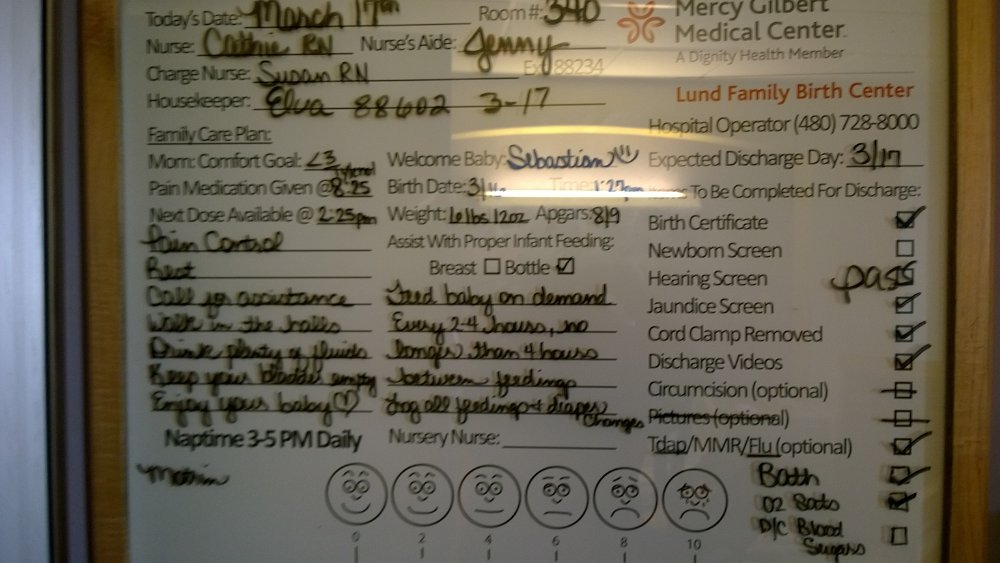 Today's Date: March 17th Room #: 340
Mercy Gilbert
Medical Center
A Dignity Health Member
Nurse: Cathie RN Nurse's Aide: Jenny
Charge Nurse: Susan RN Ext 88234
Housekeeper: Elva 88602 3-17
Lund Family Birth Center
Hospital Operator (480) 728-8000
Family Care Plan:
Mom: Comfort Goal: <3
Tylenol
Pain Medication Given @ 8:25
Next Dose Available @ 2:25pm
Pain Control
Rest
Call for assistance
Walk in the halls
Drink plenty of fluids
Keep your bladder empty
Enjoy your baby ♡
Naptime 3-5 PM Daily
Motrin
Welcome Baby: Sebastian
Birth Date: 3/16 Time: 1:27pm
Weight: 6lbs 12oz Apgars: 8/9
Assist With Proper Infant Feeding:
Breast ☐ Bottle ☑
Feed baby on demand
Every 2-4 hours, no
longer than 4 hours
between feedings
Log all feedings + diaper
Changes
Nursery Nurse:
Expected Discharge Day: 3/17
Items To Be Completed For Discharge:
Birth Certificate
Newborn Screen
Hearing Screen pass
Jaundice Screen
Cord Clamp Removed
Discharge Videos
Circumcision (optional)
Pictures (optional)
Tdap/MMR/Flu (optional)
Bath
O2 Sats
D/C Blood
Sugars
0 2 4 6 8 10